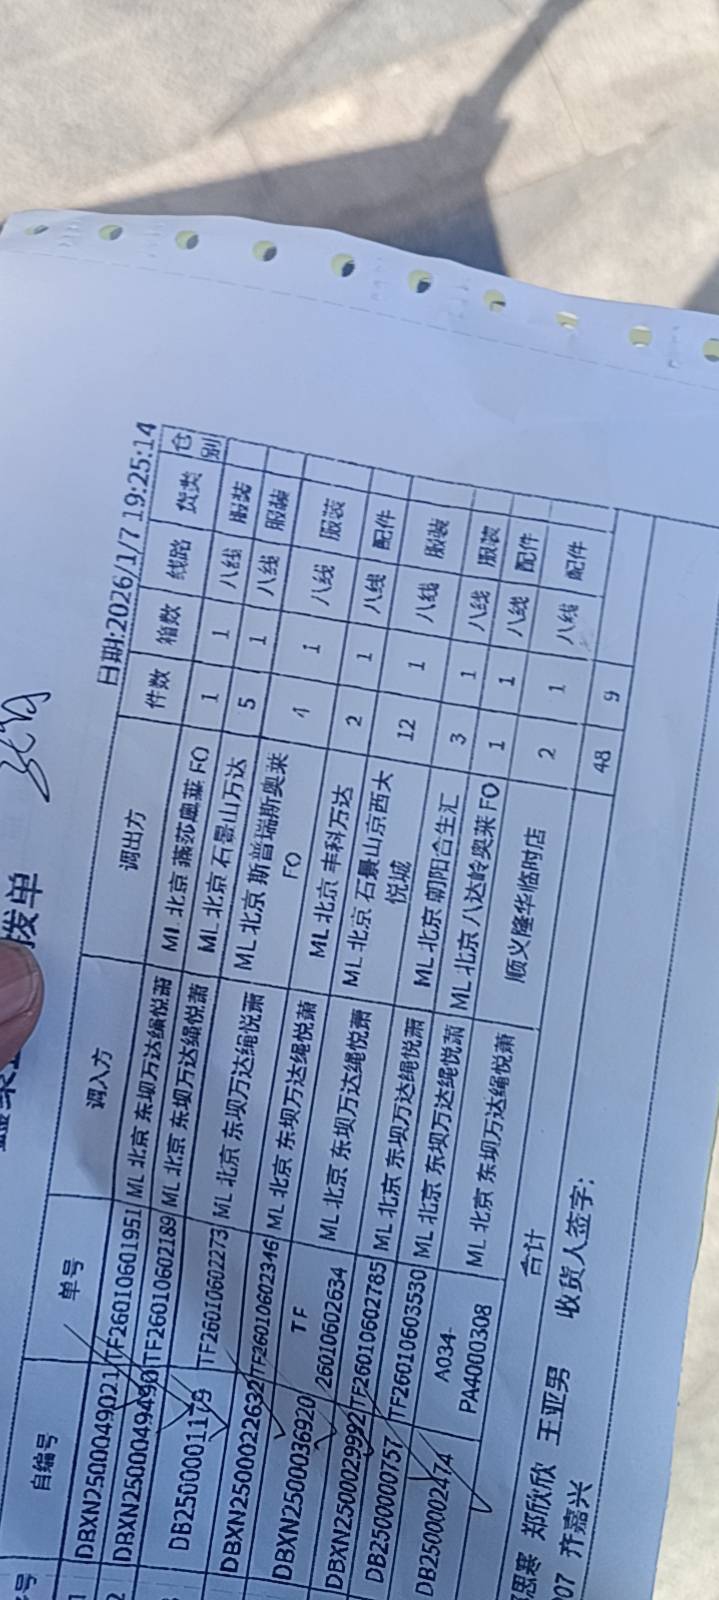 拨单
日期:2026/1/7 19:25:14
号 自编号 单号 调入方 调出方 件数 箱数 线路 货类 仓别
1 DBXN2500049021 TF26010601951 ML 北京 东坝万达绳悦萧 ML 北京 燕莎奥莱 FO 1 1 八线 服装
2 DBXN2500049490 TF26010602189 ML 北京 东坝万达绳悦萧 ML 北京 石景山万达 5 1 八线 服装
DB2500001179 TF26010602273 ML 北京 东坝万达绳悦萧 ML 北京 斯普瑞斯奥莱 FO 4 1 八线 服装
DBXN2500022632 TF26010602346 ML 北京 东坝万达绳悦萧 ML 北京 丰科万达 2 1 八线 配件
DBXN2500036920 TF 26010602634 ML 北京 东坝万达绳悦萧 ML 北京 石景山京西大悦城 12 1 八线 服装
DBXN2500029992 TF26010602785 ML 北京 东坝万达绳悦萧 ML 北京 朝阳合生汇 3 1 八线 服装
DB2500000757 TF26010603530 ML 北京 东坝万达绳悦萧 ML 北京 八达岭奥莱 FO 1 1 八线 配件
DB2500002474 A034-PA4000308 ML 北京 东坝万达绳悦萧 顺义隆华临时店 2 1 八线 配件
合计 48 9
思寒 郑欣欣 王亚男 收货人签字:
07 齐嘉兴